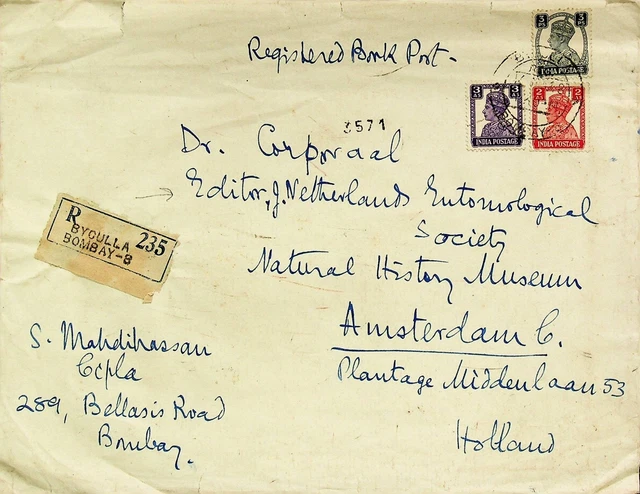 Registered Book Post.
3 PS
INDIA POSTAGE
3 AS
INDIA POSTAGE
2 AS
INDIA POSTAGE
3571
Dr. Corporaal
Editor, J. Netherlands Entomological
Society
Natural History Museum
Amsterdam C.
Plantage Middenlaan 53
Holland
R 235
BYCULLA
BOMBAY-8
S. Mahdihassan
Cipla
289, Bellasis Road
Bombay.